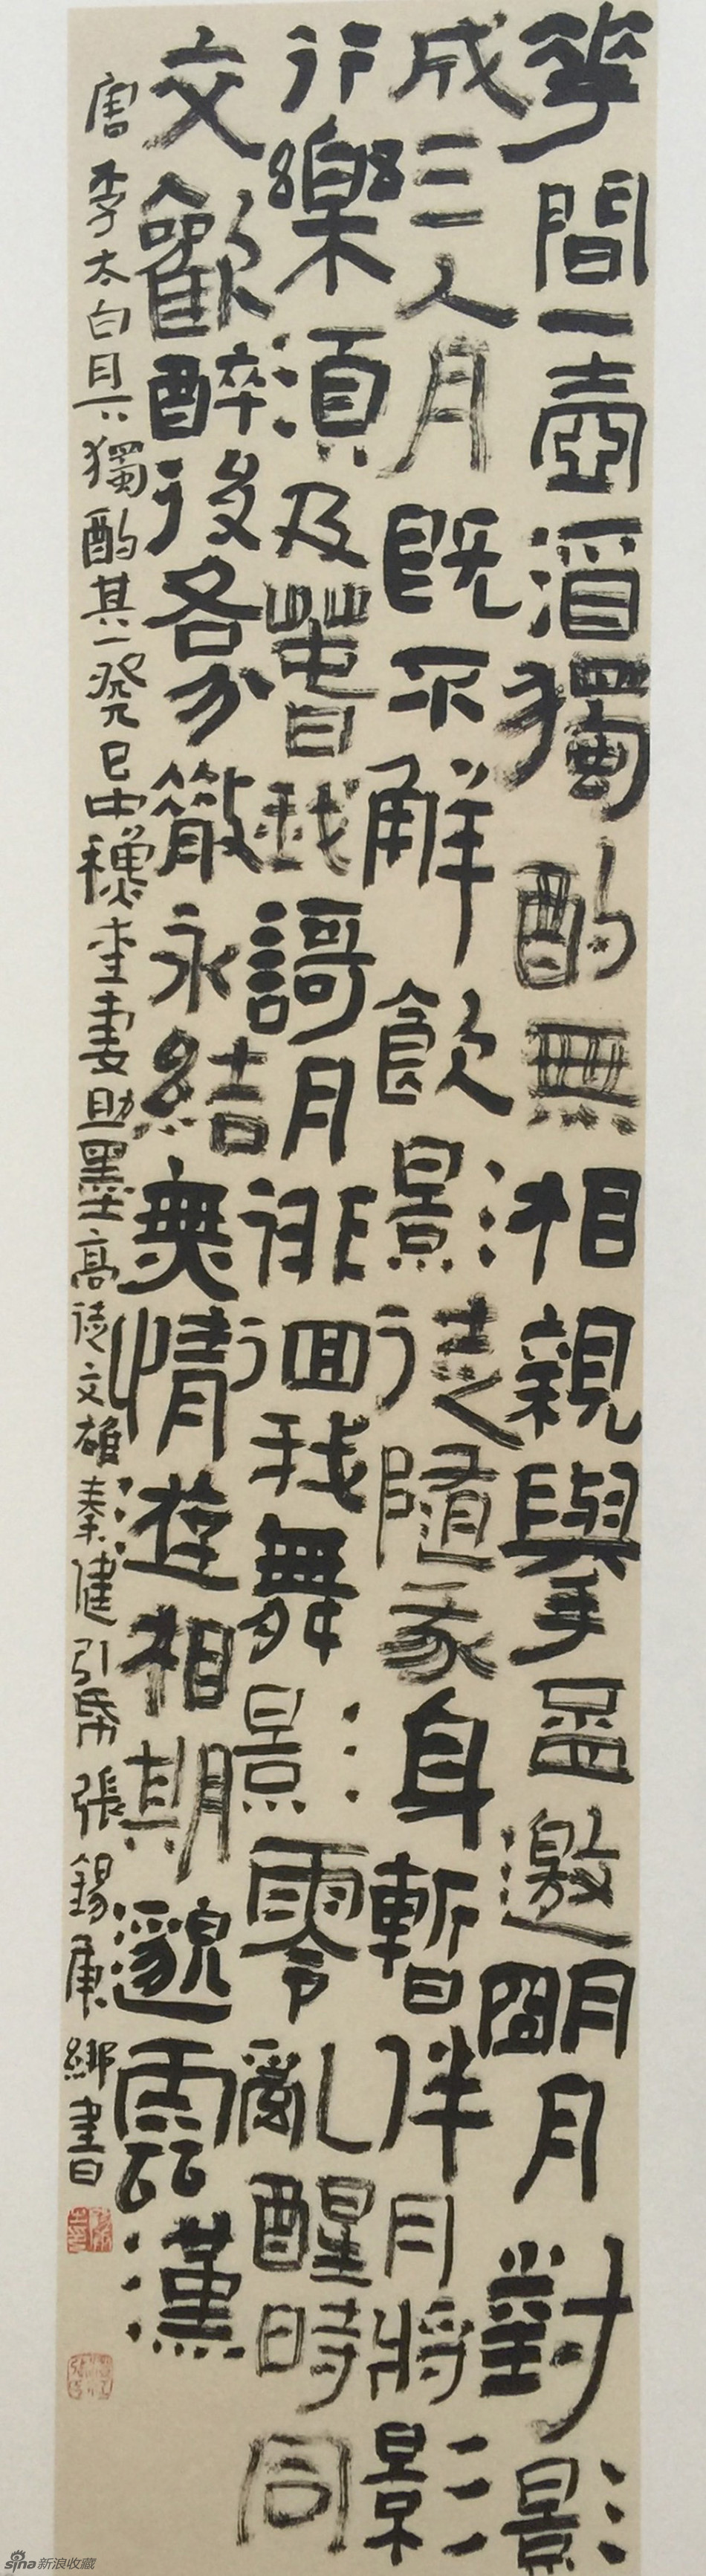 華間一壺酒獨酌無相親舉盃邀朙月對影
成三人月既不解飲影徒隨我身暫伴月將影
行樂須及萅我謌月徘徊我舞影零亂醒時同
交歡醉後各分散永結無情遊相期邈雲漢
唐李太白月下獨酌其一癸巳中龝奎妻助墨高徒文雄秦健引帋張錫庚綁書曰
sina新浪收藏